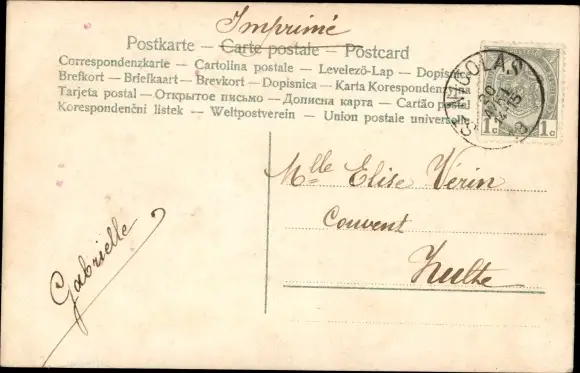 Imprimé
Postkarte — Carte postale — Postcard
Correspondenzkarte — Cartolina postale — Levelező-Lap — Dopisnice
Brefkort — Briefkaart — Brevkort — Dopisnica — Karta Korespondencyjna
Tarjeta postal — Открытое письмо — Дописна карта — Cartão postal
Korespondenční listek — Weltpostverein — Union postale universelle
NICOLAS
1c 1c
Mlle Elise Verin
Couvent
Zulte
Gabrielle